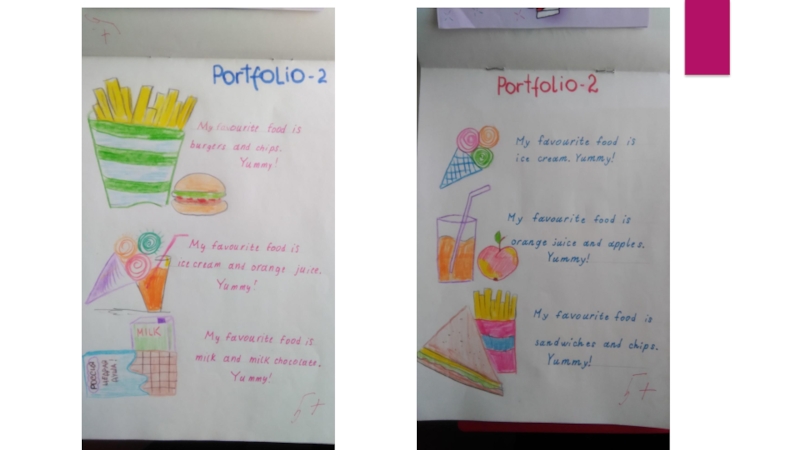 Portfolio-2
My favourite food is
burgers and chips.
Yummy!
My favourite food is
ice cream and orange juice.
Yummy!
MILK
РОССИЯ
ЩЕДРАЯ
ДУША!
My favourite food is
milk and milk chocolate.
Yummy!
5+
Portfolio-2
My favourite food is
ice cream. Yummy!
My favourite food is
orange juice and apples.
Yummy!
My favourite food is
sandwiches and chips.
Yummy!
5+